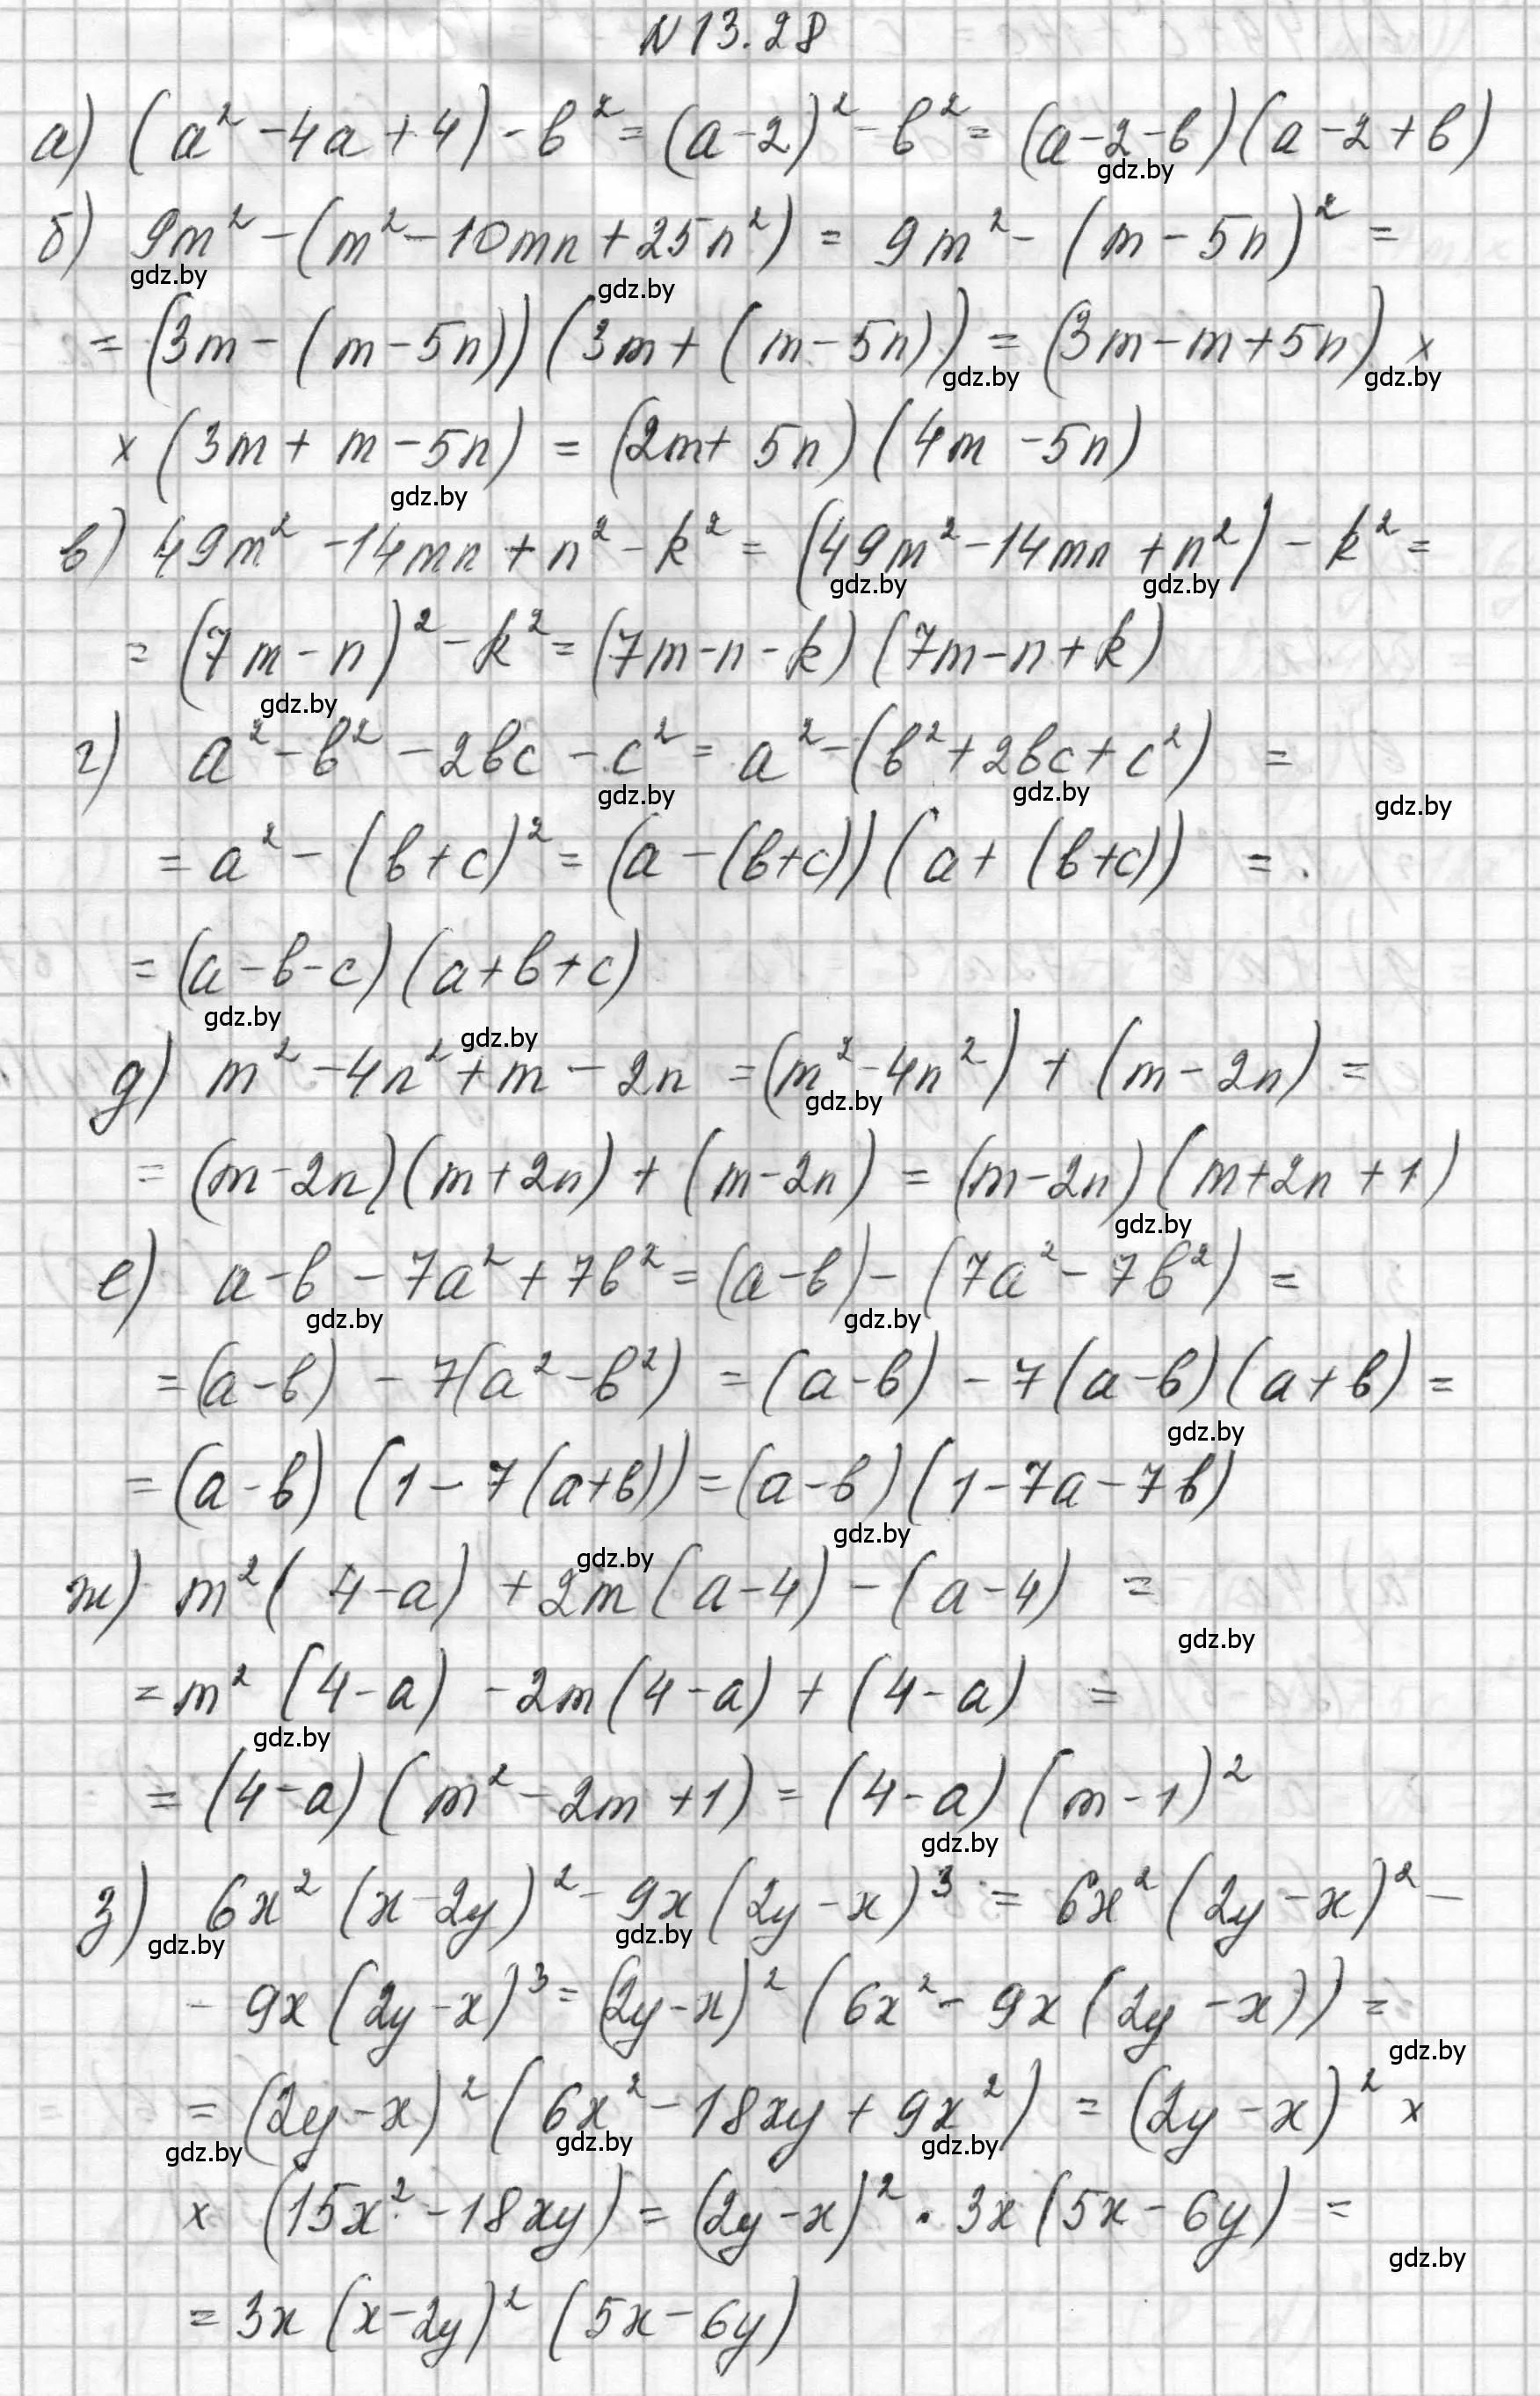 N 13.28
а) (a² - 4a + 4) - b² = (a - 2)² - b² = (a - 2 - b)(a - 2 + b)
gdz.by
б) 9m² - (m² - 10mn + 25n²) = 9m² - (m - 5n)² =
gdz.by gdz.by
= (3m - (m - 5n))(3m + (m - 5n)) = (3m - m + 5n) ×
gdz.by gdz.by
× (3m + m - 5n) = (2m + 5n)(4m - 5n)
gdz.by
в) 49m² - 14mn + n² - k² = (49m² - 14mn + n²) - k² =
gdz.by gdz.by
= (7m - n)² - k² = (7m - n - k)(7m - n + k)
gdz.by
г) a² - b² - 2bc - c² = a² - (b² + 2bc + c²) =
gdz.by gdz.by gdz.by
= a² - (b + c)² = (a - (b + c))(a + (b + c)) =
= (a - b - c)(a + b + c)
gdz.by gdz.by
д) m² - 4n² + m - 2n = (m² - 4n²) + (m - 2n) =
gdz.by
= (m - 2n)(m + 2n) + (m - 2n) = (m - 2n)(m + 2n + 1)
gdz.by
е) a - b - 7a² + 7b² = (a - b) - (7a² - 7b²) =
gdz.by gdz.by
= (a - b) - 7(a² - b²) = (a - b) - 7(a - b)(a + b) =
gdz.by
= (a - b)(1 - 7(a + b)) = (a - b)(1 - 7a - 7b)
gdz.by
gdz.by
ж) m²(4 - a) + 2m(a - 4) - (a - 4) =
gdz.by
= m²(4 - a) - 2m(4 - a) + (4 - a) =
gdz.by
= (4 - a)(m² - 2m + 1) = (4 - a)(m - 1)²
gdz.by
з) 6x²(x - 2y)² - 9x(2y - x)³ = 6x²(2y - x)² -
gdz.by gdz.by
- 9x(2y - x)³ = (2y - x)²(6x² - 9x(2y - x)) =
gdz.by
= (2y - x)²(6x² - 18xy + 9x²) = (2y - x)² ×
gdz.by gdz.by gdz.by
× (15x² - 18xy) = (2y - x)² · 3x(5x - 6y) =
gdz.by
= 3x(x - 2y)²(5x - 6y)